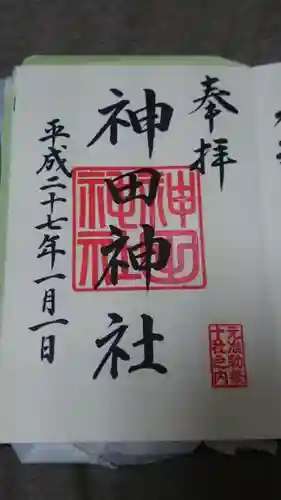 奉拝
神田神社
平成二十七年一月一日